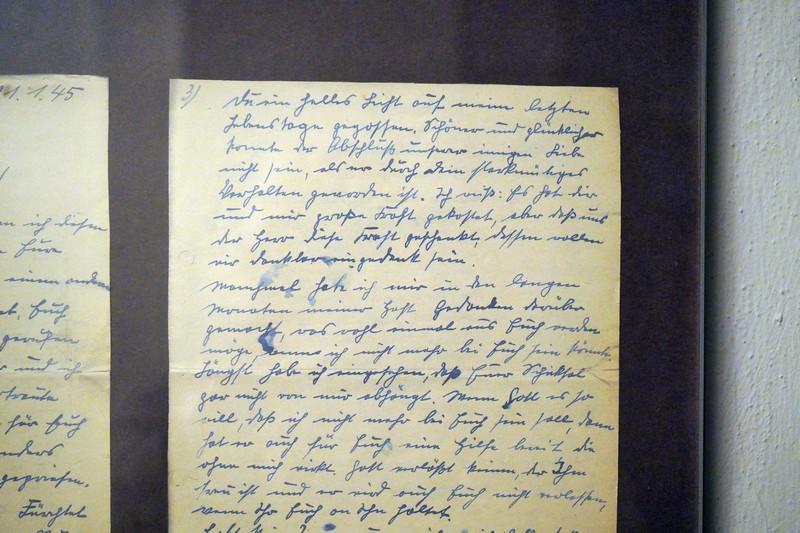 1.1.45
en ich diesen
Eure
einem anderen
Euch
gerufen
und ich
für Euch
nders
gepriesen.
Fürchtet
3)
Du ein helles Licht auf meine letzten
Lebenstage gegossen. Schöner und glücklicher
konnte der Abschluß unserer innigen Liebe
nicht sein, als er durch Dein starkmütiges
Verhalten geworden ist. Ich weiß: Es hat dir
und mir große Kraft gekostet, aber daß uns
der Herr diese Kraft geschenkt, dessen wollen
wir dankbar eingedenk sein.
Manchmal habe ich mir in den langen
Monaten meiner Haft Gedanken darüber
gemacht, was wohl einmal aus Euch werden
möge, wenn ich nicht mehr bei Euch sein könnte.
Längst habe ich eingesehen, daß Euer Schicksal
gar nicht von mir abhängt. Wenn Gott es so
will, daß ich nicht mehr bei Euch sein soll, dann
hat er auch für Euch eine Hilfe bereit, die
ohne mich wirkt. Gott verläßt keinen, der Ihm
treu ist und er wird auch Euch nicht verlassen,
wenn Ihr Euch an Ihn haltet.